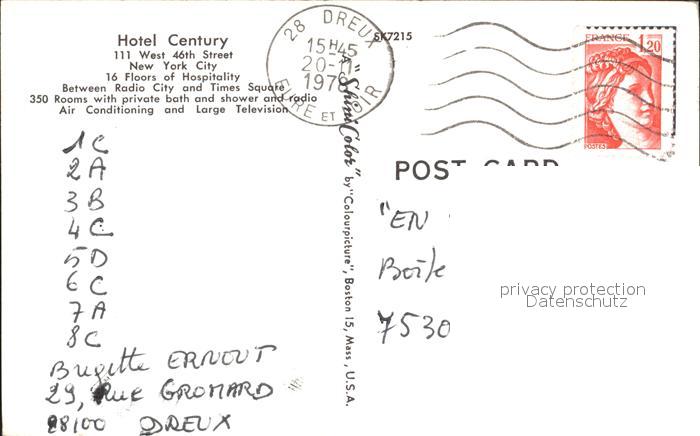 Hotel Century
111 West 46th Street
New York City
16 Floors of Hospitality
Between Radio City and Times Square
350 Rooms with private bath and shower and radio
Air Conditioning and Large Television
SK7215
28 DREUX
15H45
20-11
197
EURE ET LOIR
FRANCE 1,20
POSTES
"Shini-Color" by "Colourpicture", Boston 15, Mass., U.S.A.
POST CARD
1C
2A
3B
4C
5D
6C
7A
8C
Brigitte ERNOUT
29, Rue GROMARD
28100 DREUX
"EN
Boîte
7530
privacy protection
Datenschutz